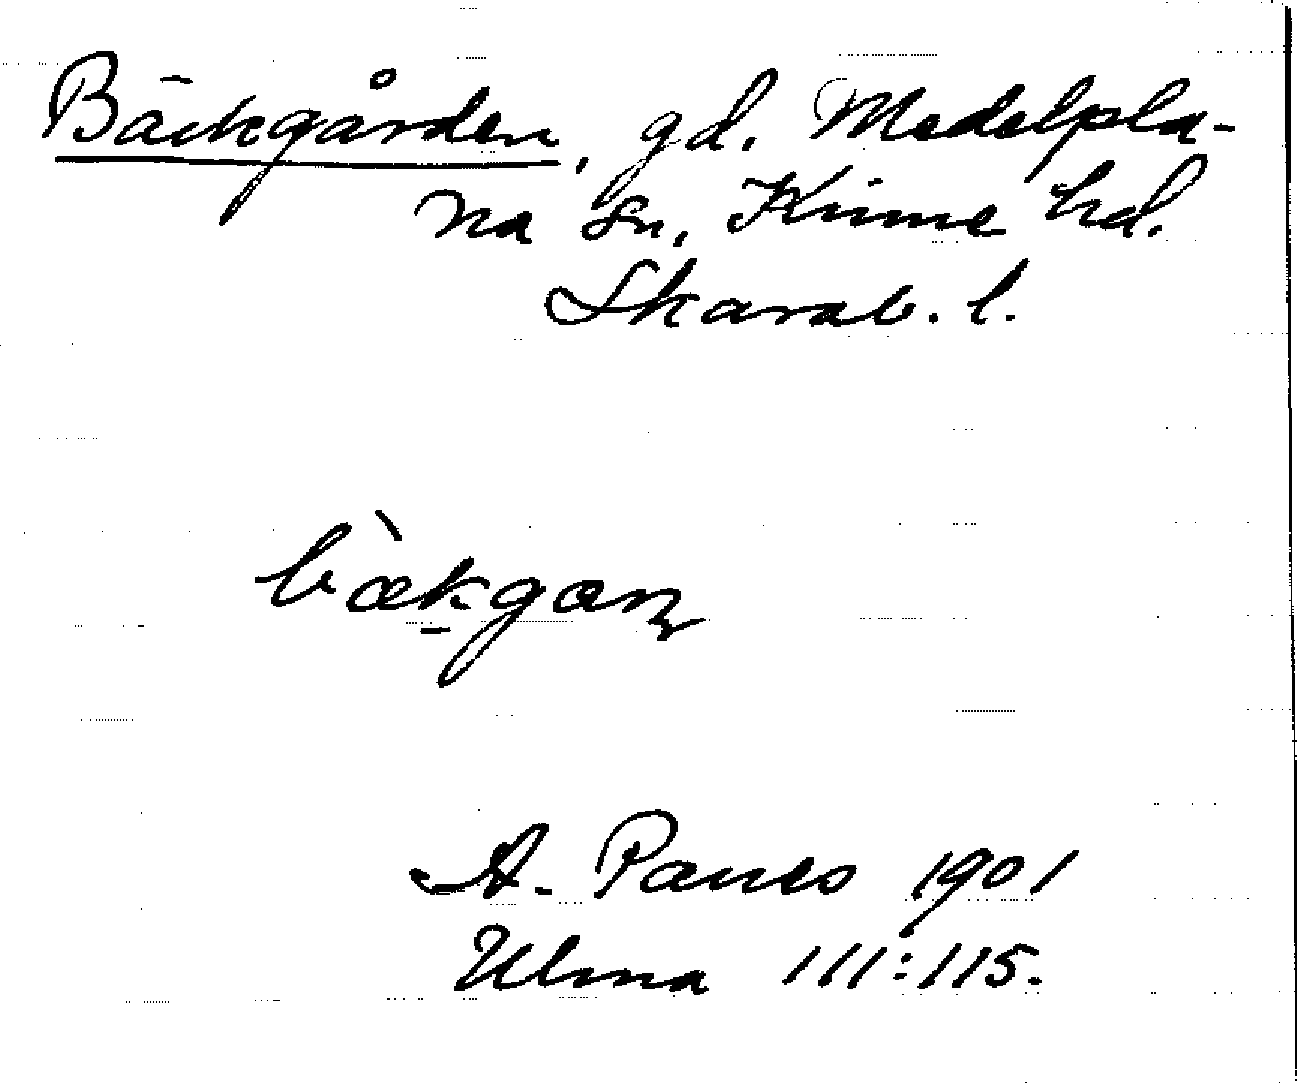 Bäckgården, gd. Medelpla-
na sn, Kinne hd.
Skarab. l.
bæ̀kgaɳ
A. Paues 1901
Ulma 111:115.